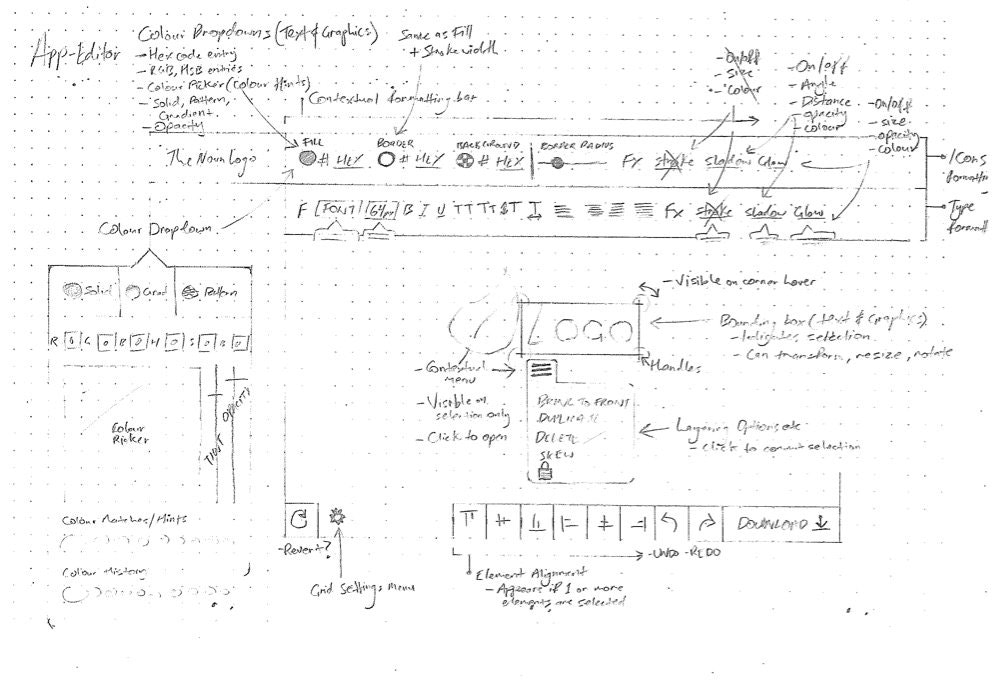 App-Editor
Colour Dropdowns (Text & Graphics)
- Hex code entry
- RGB, HSB entries
- Colour Picker (Colour Hints)
- Solid, Pattern,
Gradient
- Opacity
Same as Fill
+ Stroke width
- On/off
- Size
- Colour
- On/off
- Angle
- Distance
- opacity
- colour
- On/off
- size
- opacity
- colour
Contextual formatting bar
The Noun Logo
FILL
# HEX
BORDER
# HEX
BACKGROUND
# HEX
BORDER RADIUS
FX stroke shadow Glow
Icons
formatt
F [FONT] [64pt] B I U TT Tt T T FX stroke shadow Glow
Type
formatt
Colour Dropdown
Solid Grad Pattern
R 0 G 0 B 0 H 0 S 0 B 0
Colour
Picker
TINT
OPACITY
Colour Matches/Hints
Colour History
- Visible on corner hover
LOGO
Bounding box (text & Graphics)
- Can transform, resize, rotate
Handles
- Contextual
menu
- Visible on
selection only
- Click to open
BRING TO FRONT
DUPLICATE
DELETE
SKEW
Layering Options etc
- Click to convert selection
- Revert?
Grid Settings Menu
DOWNLOAD
- UNDO - REDO
Element Alignment
- Appears if 1 or more
elements are selected